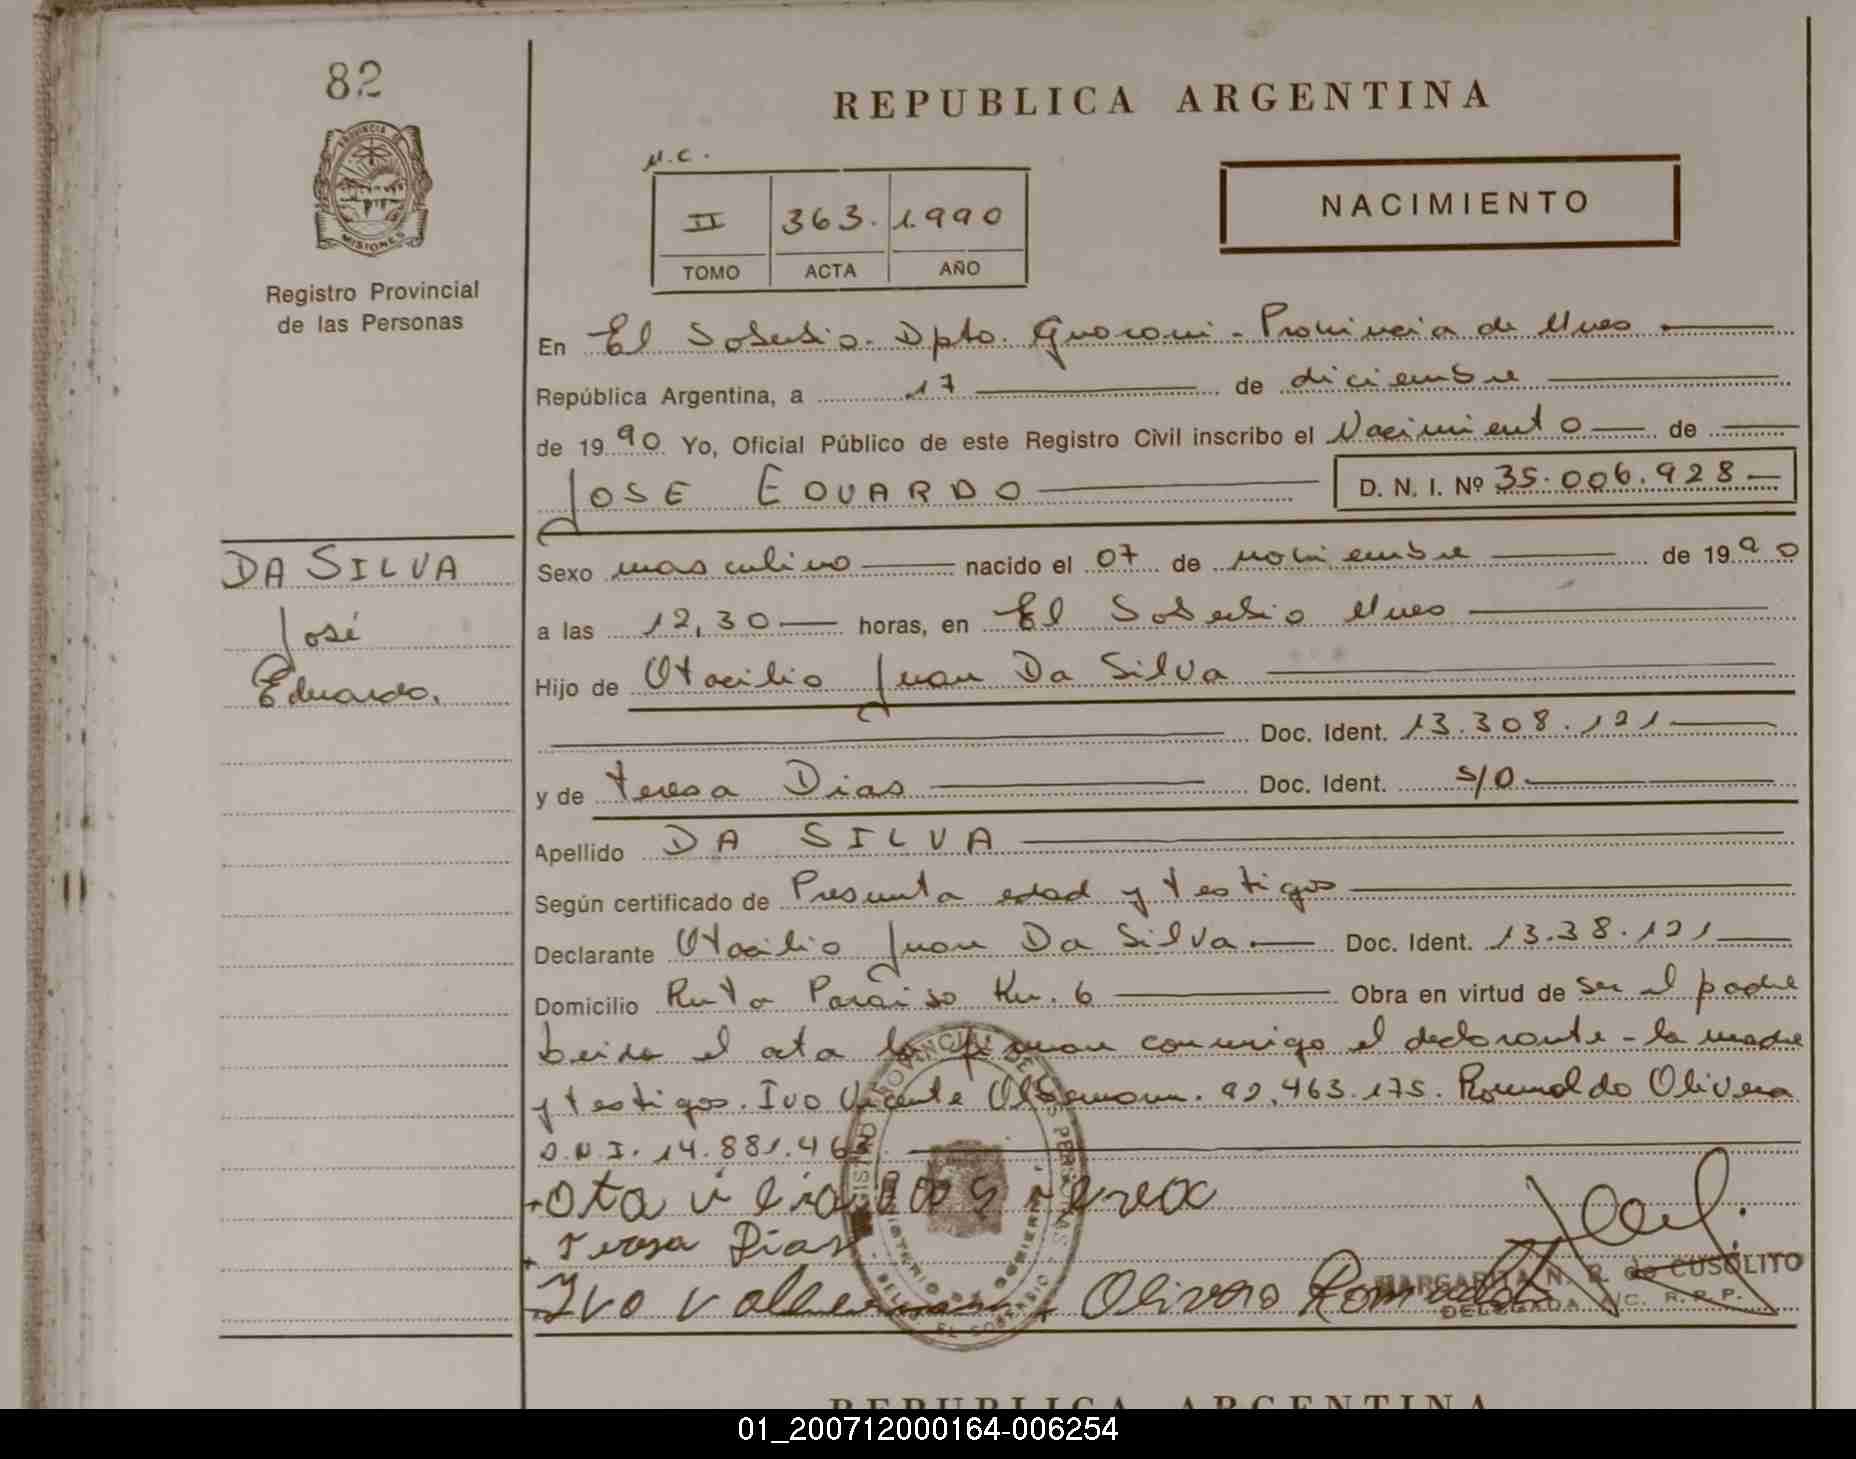 82
REPUBLICA ARGENTINA
PROVINCIA DE
MISIONES
Registro Provincial
de las Personas
M.C.
II 363. 1.990
TOMO ACTA AÑO
NACIMIENTO
En El Soberbio. Dpto. Guarani - Provincia de Mnes
República Argentina, a 17 de diciembre
de 1990. Yo, Oficial Público de este Registro Civil inscribo el Nacimiento de
JOSE EDUARDO D. N. I. Nº 35.006.928
DA SILVA
José
Eduardo.
Sexo masculino nacido el 07 de noviembre de 1990
a las 12,30 horas, en El Soberbio Mnes
Hijo de Otacilio Juan Da Silva
Doc. Ident. 13.308.121
y de Teresa Dias Doc. Ident. S/D
Apellido DA SILVA
Según certificado de Presunta edad y testigos
Declarante Otacilio Juan Da Silva Doc. Ident. 13.38.121
Domicilio Ruta Paraiso Km. 6 Obra en virtud de ser el padre
leida el acta la firman conmigo el declarante - la madre
y testigos. Ivo Vicente 92.463.175. Romualdo Olivera
D.N.I. 14.881.46
Teresa Dias
Ivo Olivera
MARGARITA N. B. de CUSOLITO
DELEGADA A/C. R. P. P.
REPUBLICA ARGENTINA
01_200712000164-006254